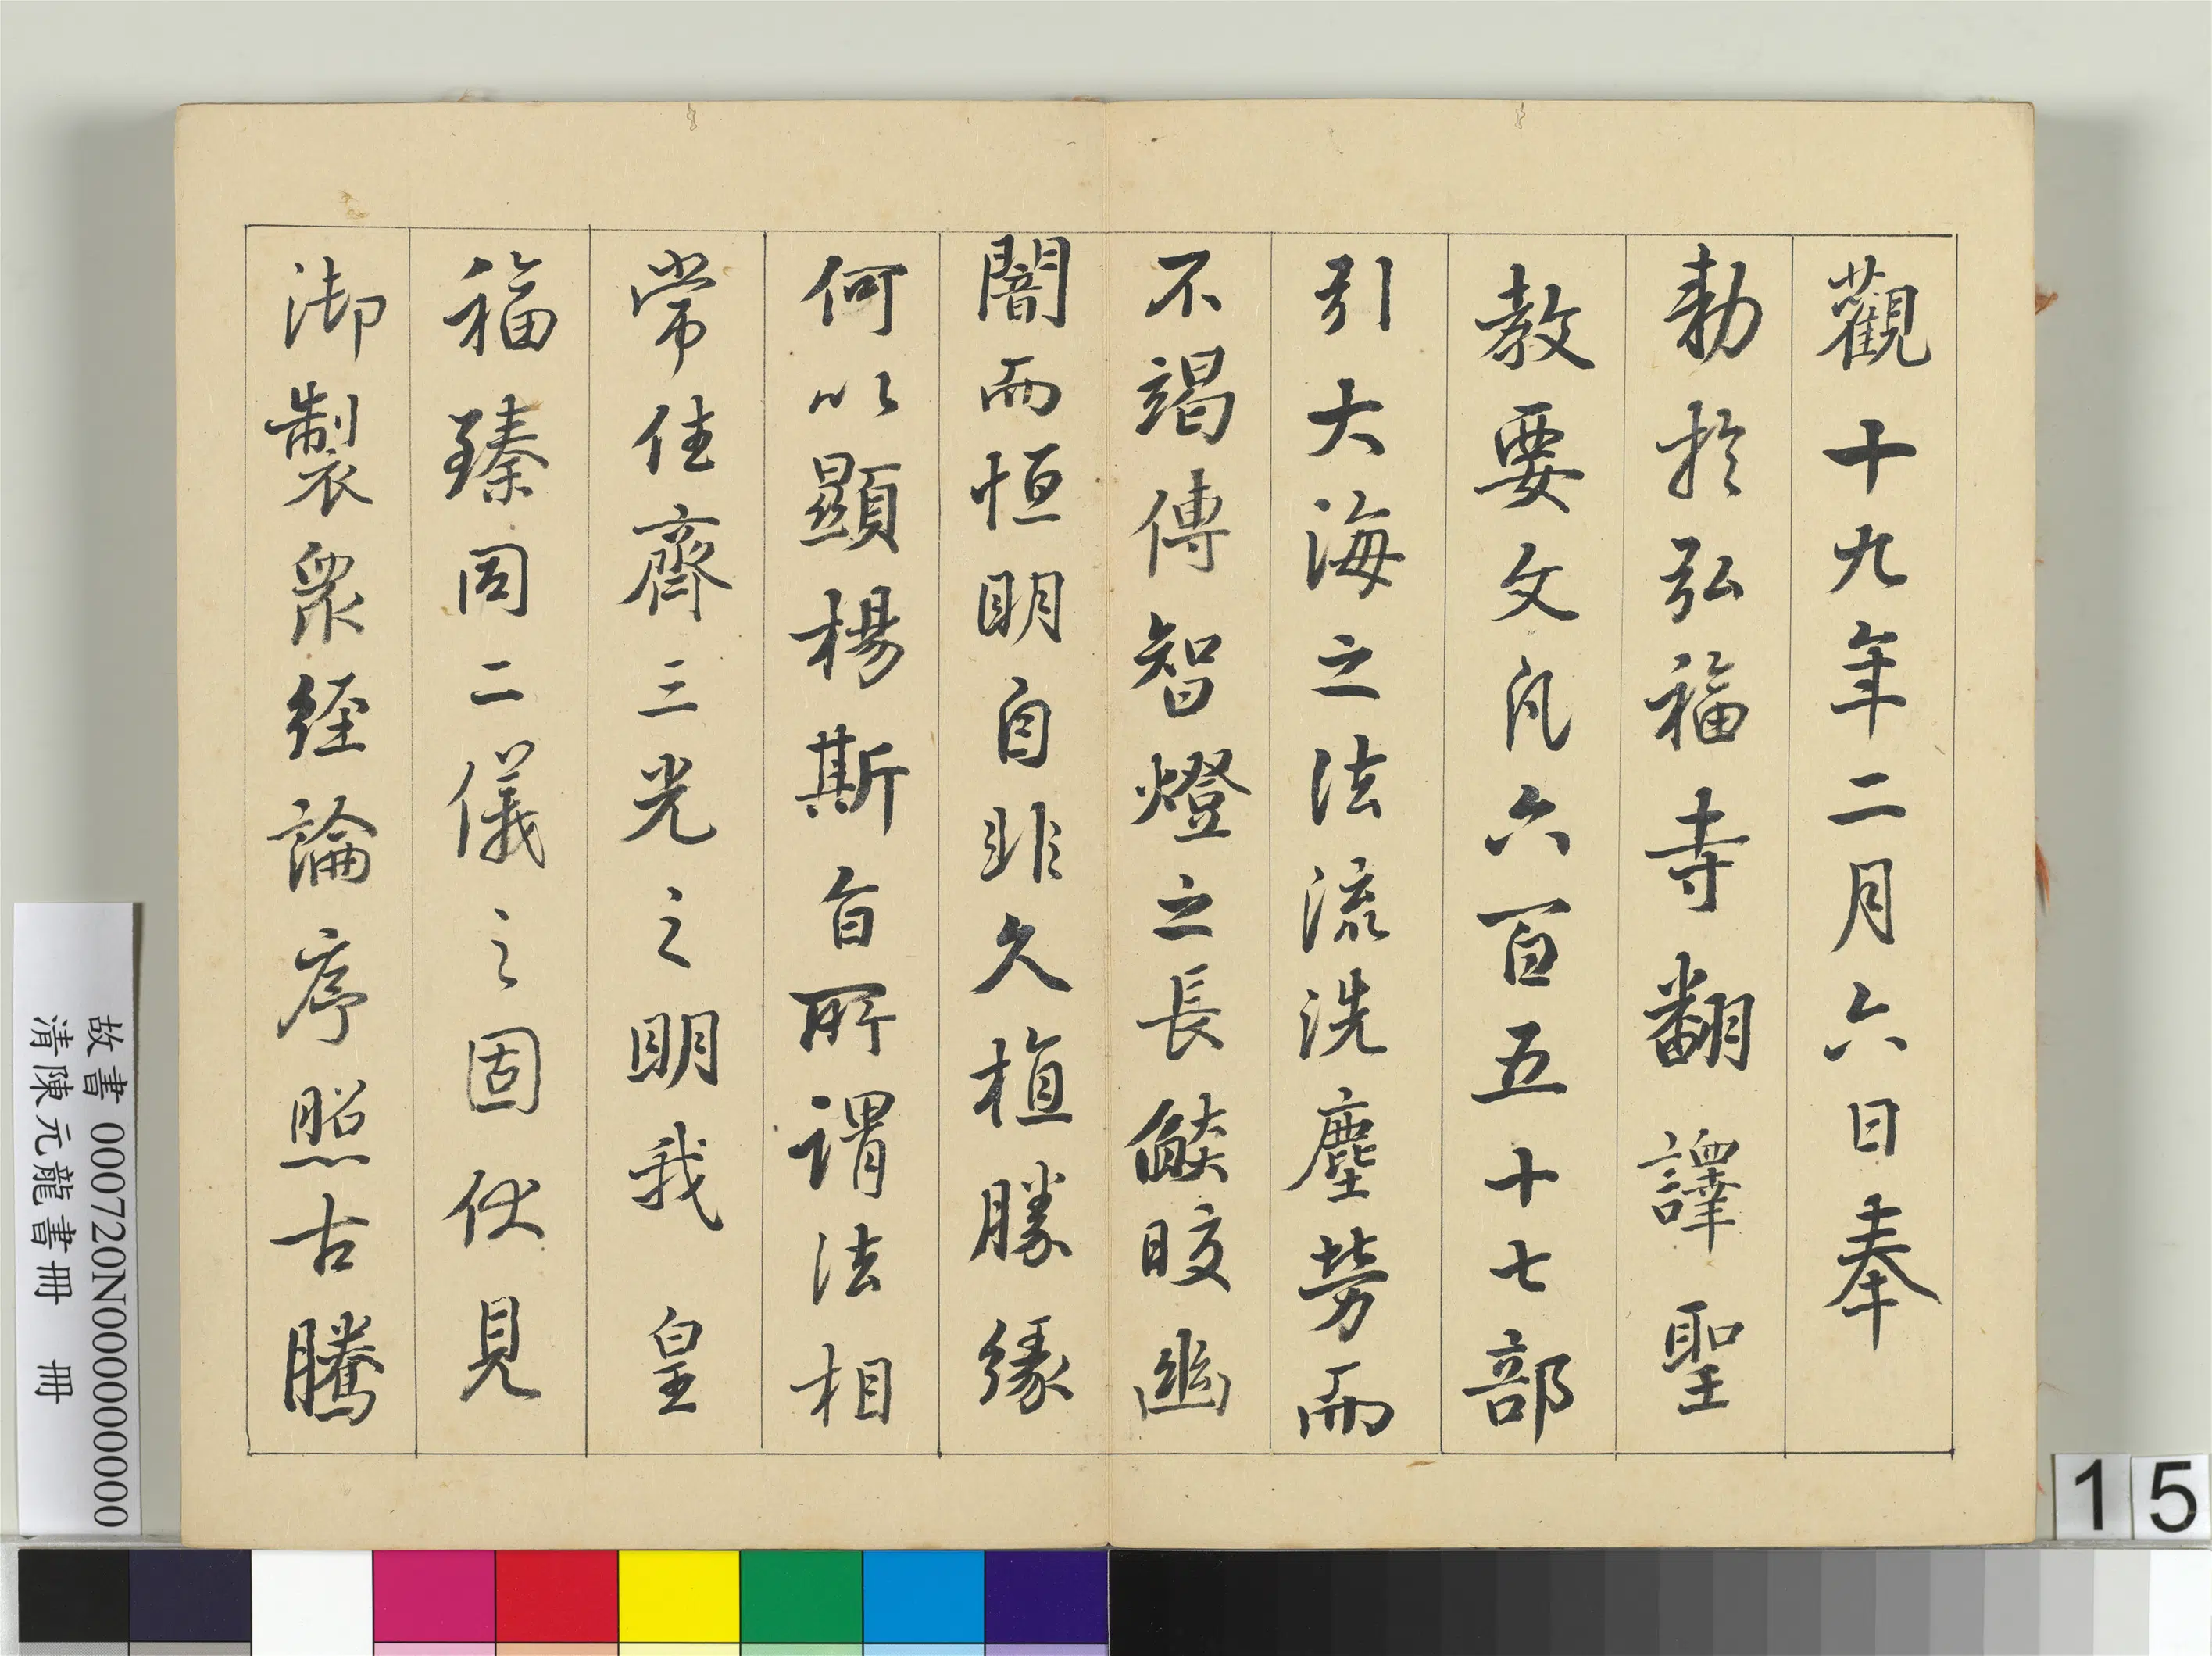 觀十九年二月六日奉
勅於弘福寺翻譯聖
教要文凡六百五十七部
引大海之法流洗塵勞而
不竭傳智燈之長燄皎幽
闇而恒明自非久植勝緣
何以顯楊斯旨所謂法相
常住齊三光之明我 皇
福臻同二儀之固伏見
御製衆經論序照古騰
故書 000720N000000000
清陳元龍書冊 冊
15